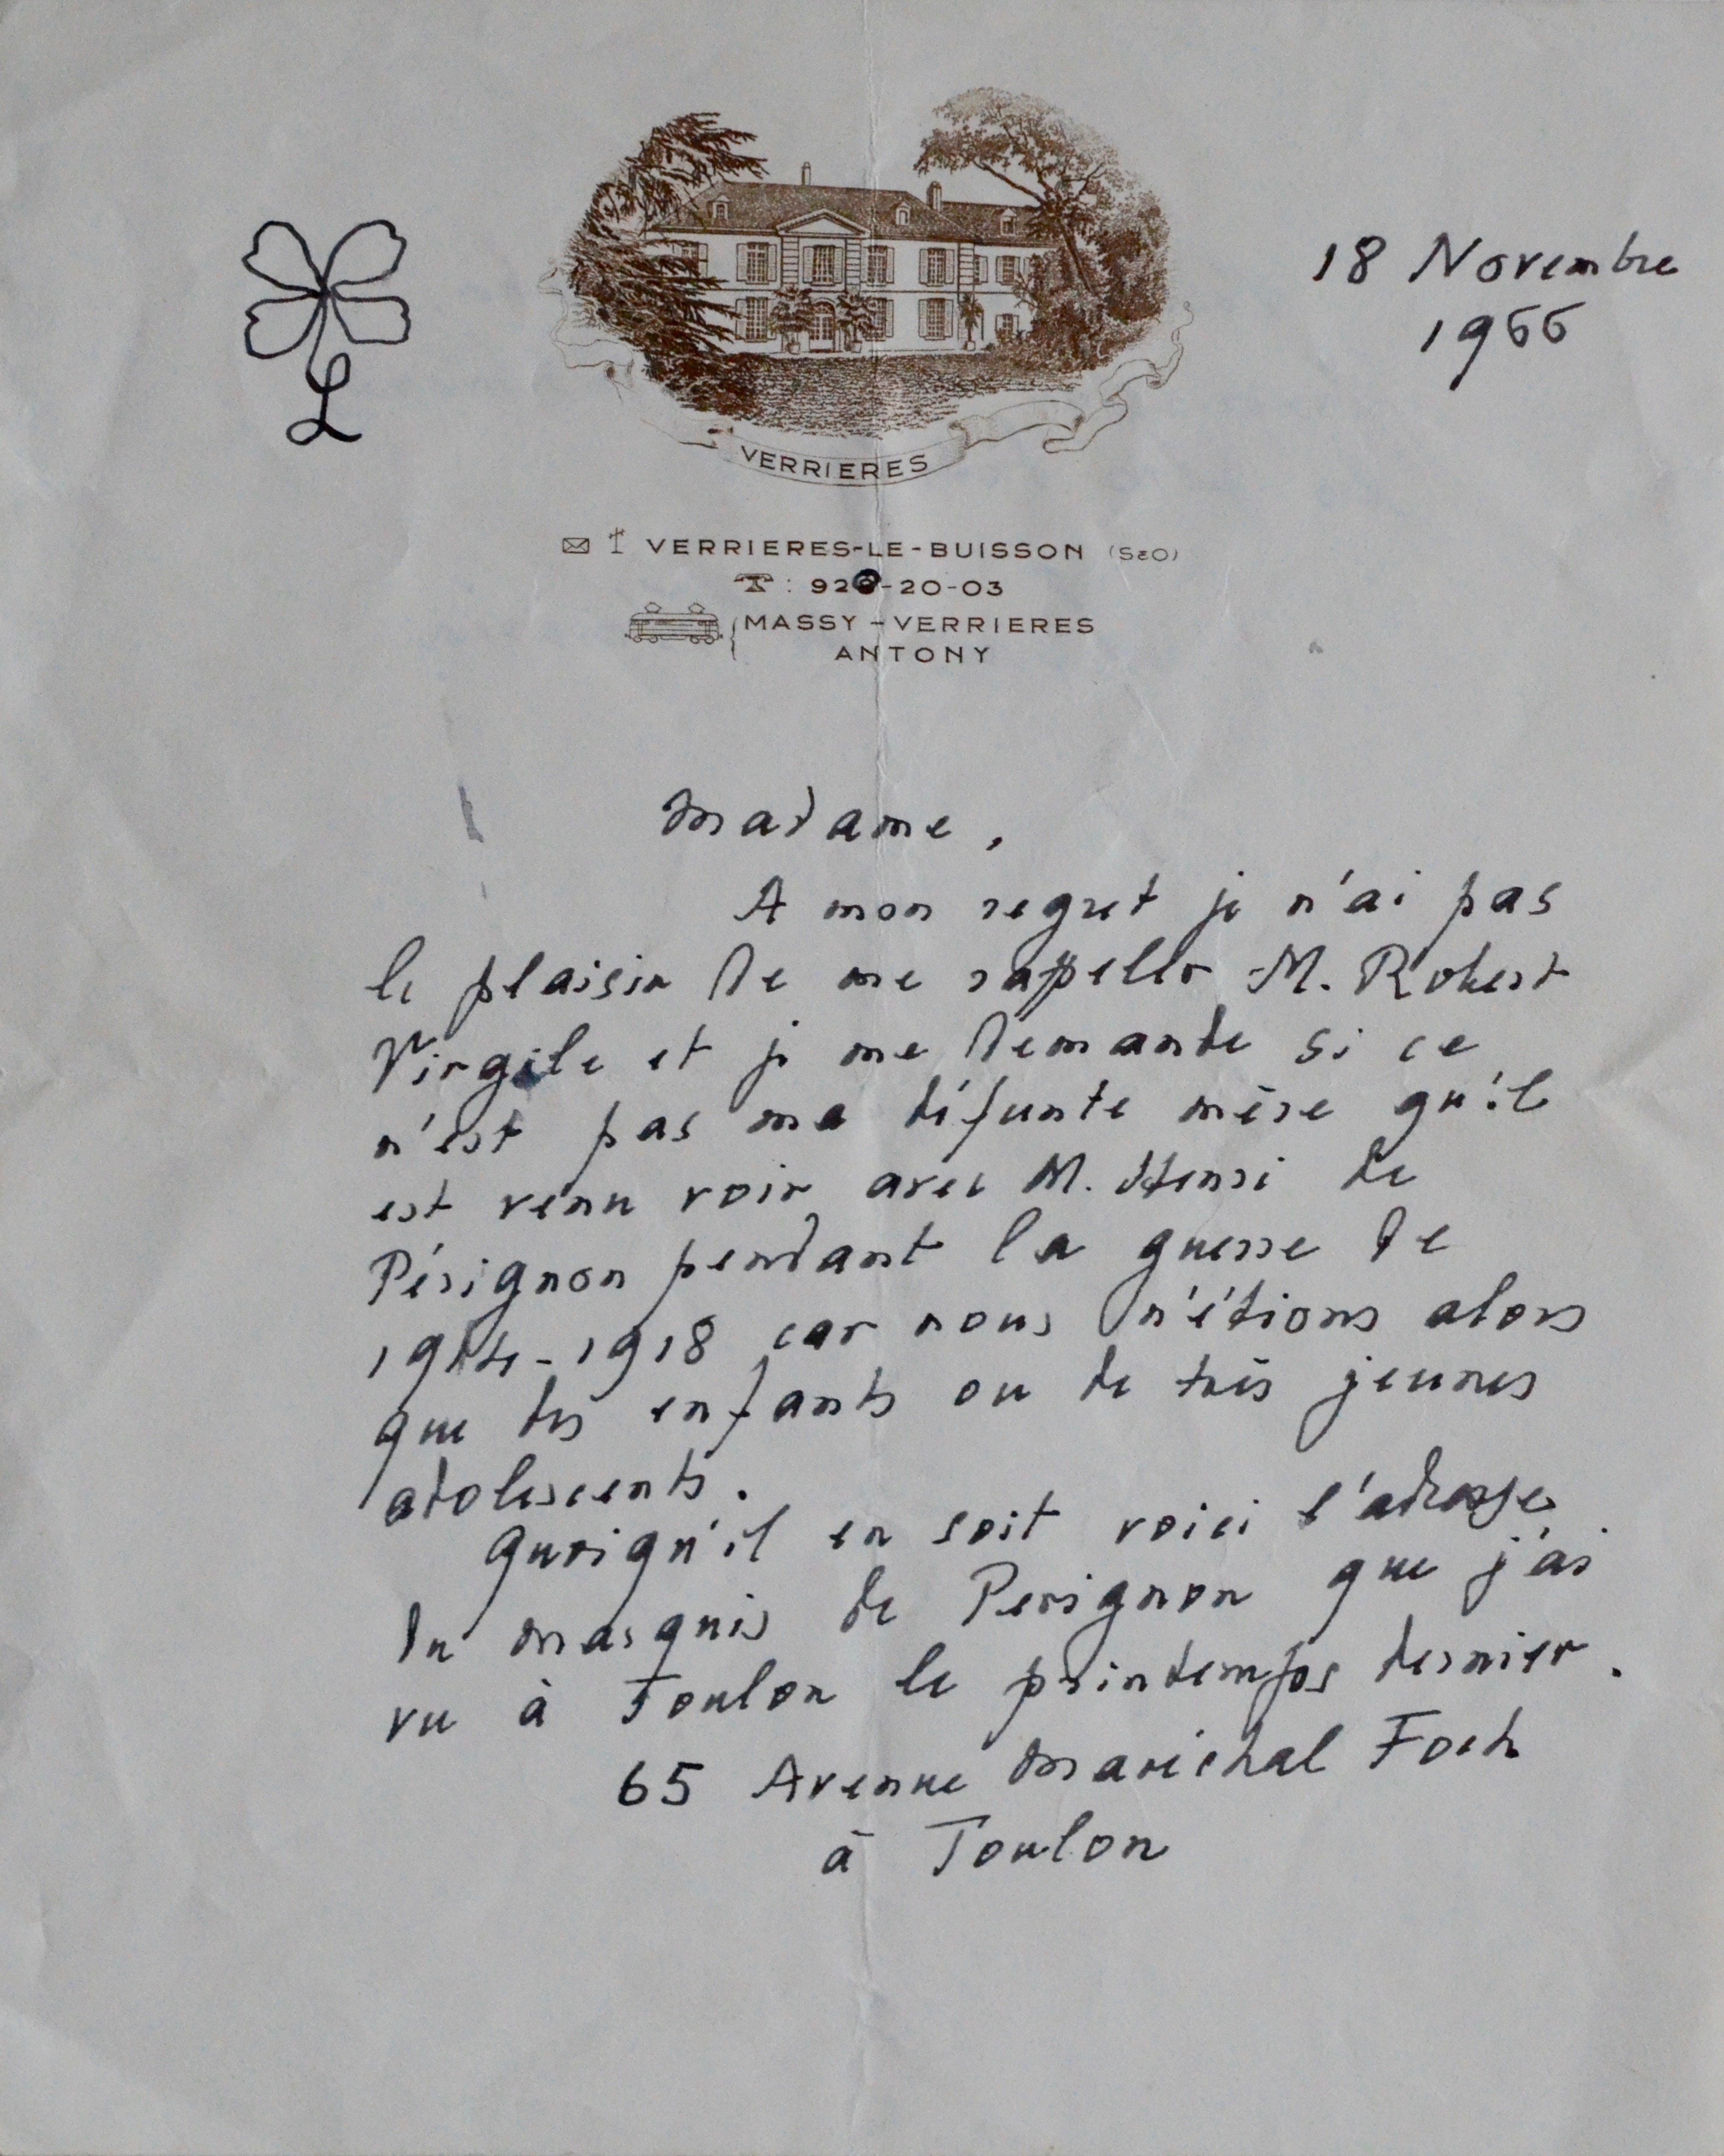 18 Novembre
1966
L
VERRIERES
VERRIERES-LE-BUISSON (S&O)
: 920-20-03
MASSY-VERRIERES
ANTONY
Madame,
A mon regret je n'ai pas
le plaisir de me rappeller M. Robert
Virgile et je me demande si ce
n'est pas ma défunte mère qu'il
est venu voir avec M. Henri de
Pérignon pendant la guerre de
1914-1918 car nous n'étions alors
que des enfants ou de très jeunes
adolescents.
Quoiqu'il en soit voici l'adresse
du Marquis de Perignon que j'ai
vu à Toulon le printemps dernier.
65 Avenue Maréchal Foch
à Toulon